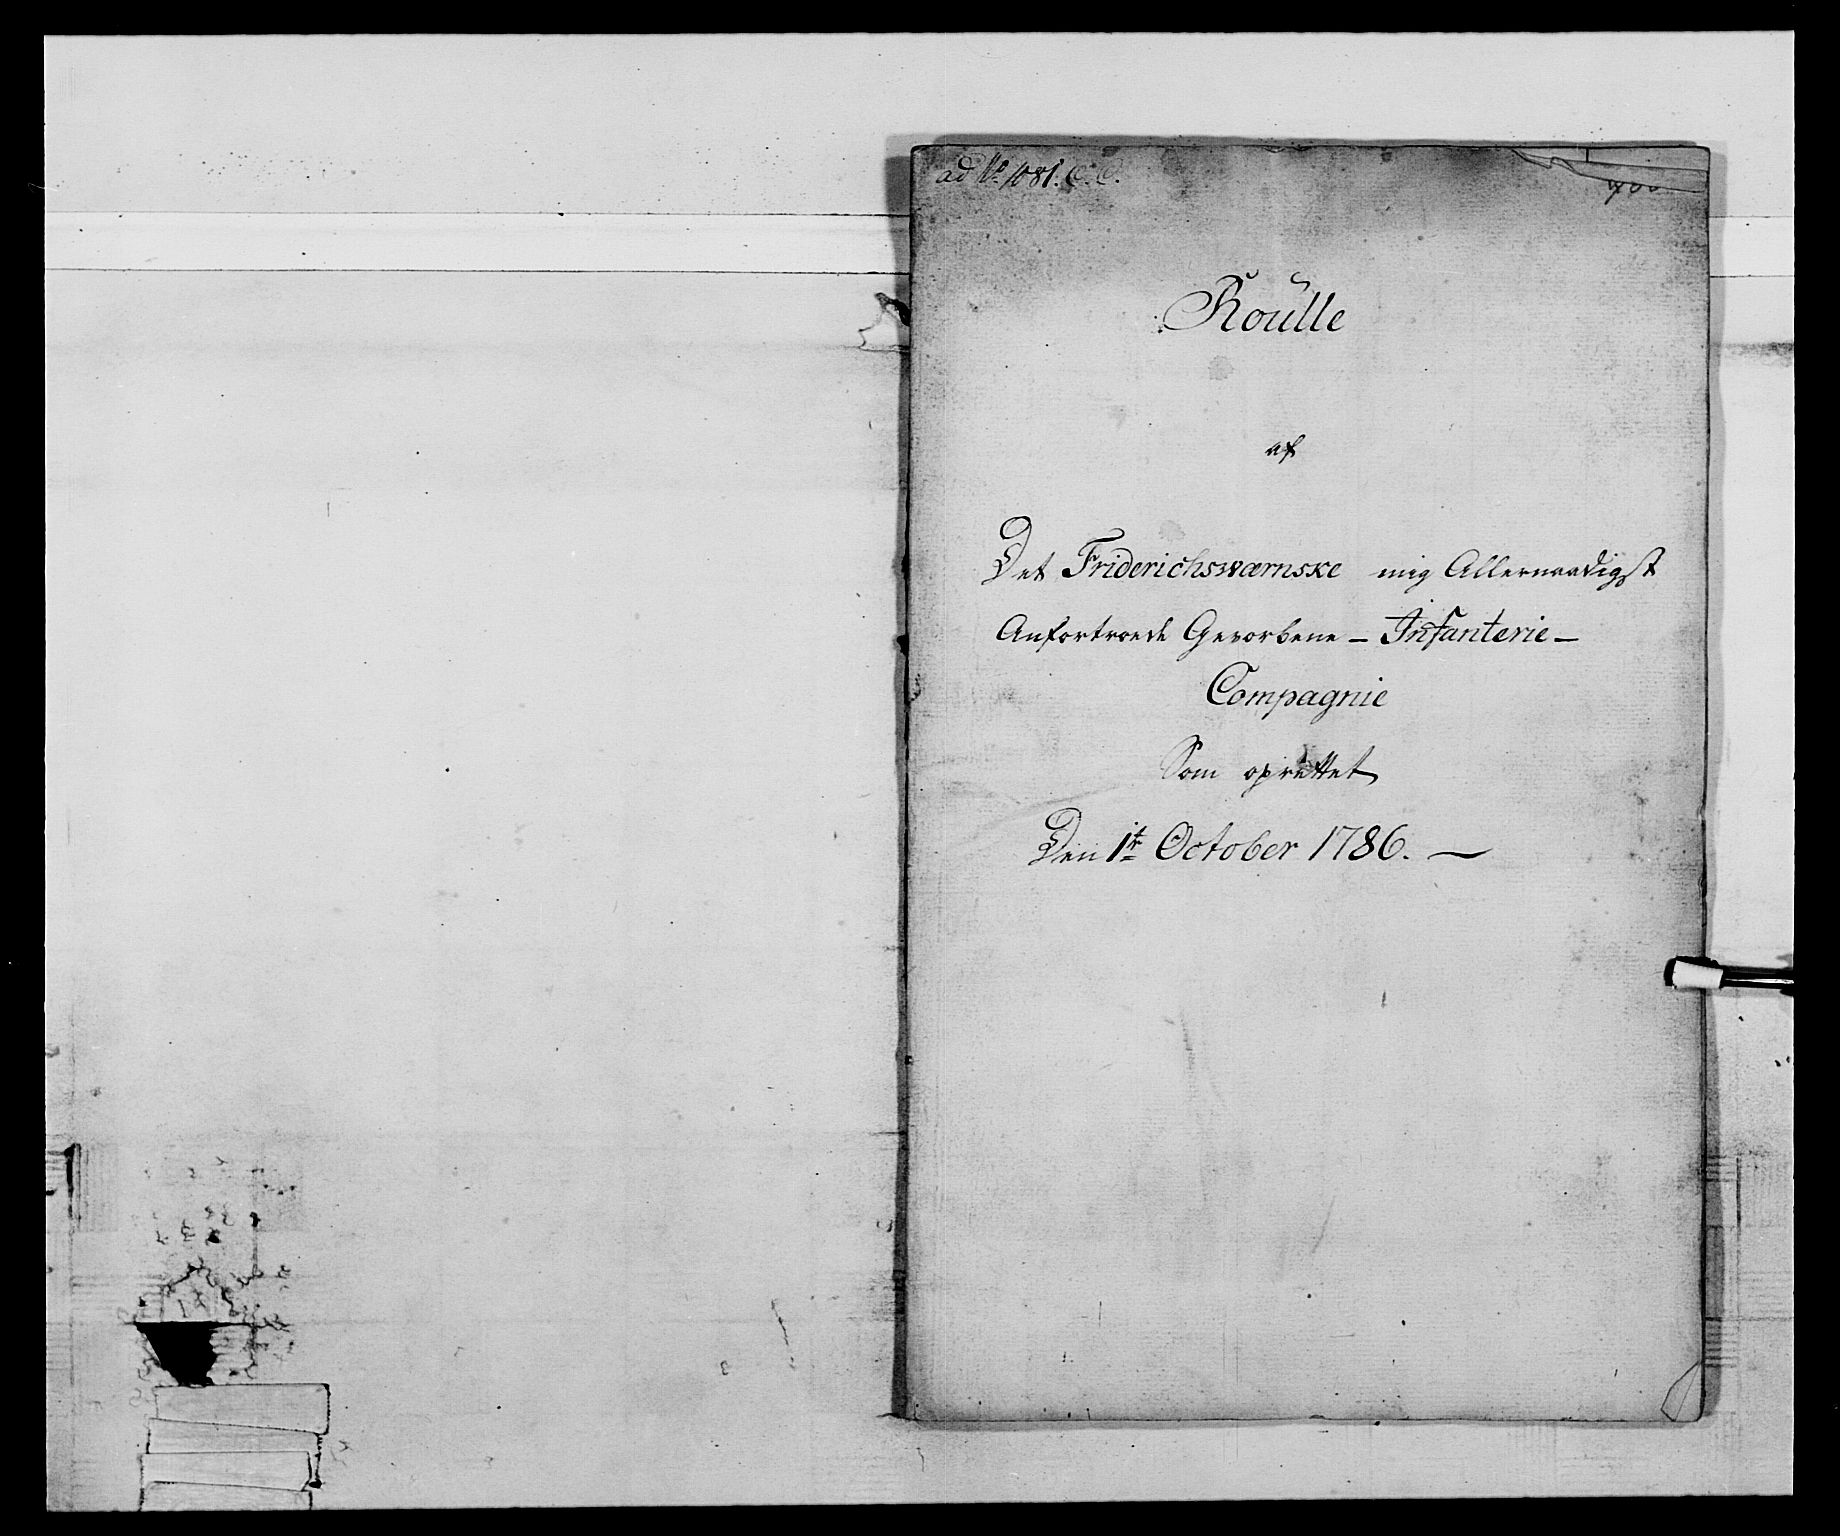 ad No 1081. C. C.
Roulle
af
Det Friderichswærnske mig Allernaadigst
Anfortroede Gevorbene - Infanterie -
Compagnie
Som oprettet
Den 1te October 1786. -